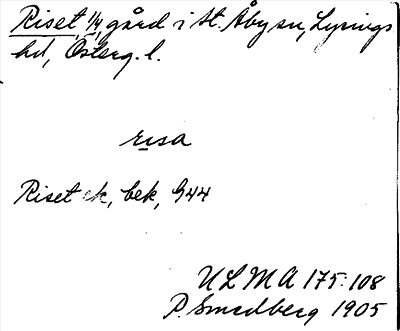 Riset, 1/4 gård i St. Åby sn, Lysings
hd, Österg. l.
rɩsa
Riset ek, bek, G44
ULMA 175:108
P. Smedberg 1905